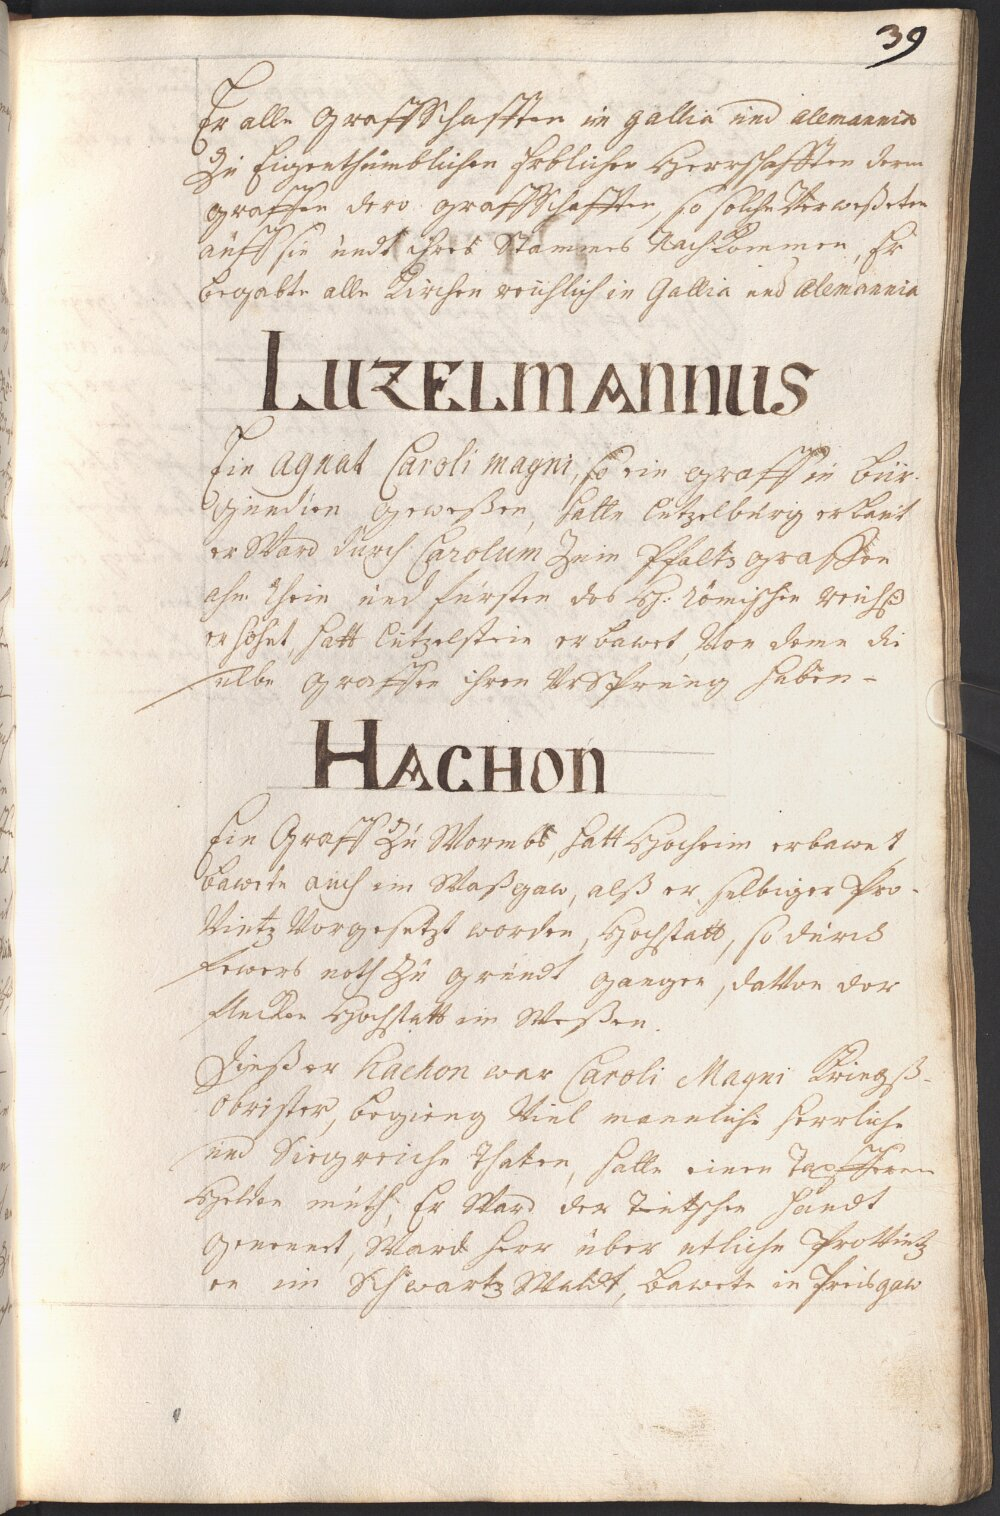 39
Er alle Graffschafften in Gallia und Alemannia
Zu Eigenthümblichen Erblichen Herrschafften denn
graffen dero graffschafften, so solche Verweßeten
auff sie undt ihres Stammes Nachkommen, Er
begabte alle Kirchen reichlich in Gallia und Alemannia
LUZELMANNUS
Ein Agnat Caroli Magni, so ein graff in Bur-
gundien geweßen, hatte Lutzelburg erbaut
er Ward durch Carolum Zum Pfaltz graffen
ahm Rhein und fürsten des H: Römischen Reichs
erhöhet, hatt Lützelstein erbawet, Von deme die
selbe graffen ihren Ursprung haben -
HACHON
Ein Graff Zu Wormbs, hatt Hocheim erbawet
bawete auch im Waßgaw, alß er selbiger Pro-
Vintz Vorgesetzt worden, Hochstatt, so durch
fewers noth Zu grundt gangen, daVon der
flecken Hochstatt im Weßen.
Dießer Hachon war Caroli Magni Kriegß-
Obrister, begieng Viel mannliche herrliche
und Siegreiche Thaten, hatte einen Tapfferen
Helden muth, Er Ward der Teutschen handt
genennet, Ward herr über etliche ProVintz
en im Schwartz Waldt, bawete in Preisgaw